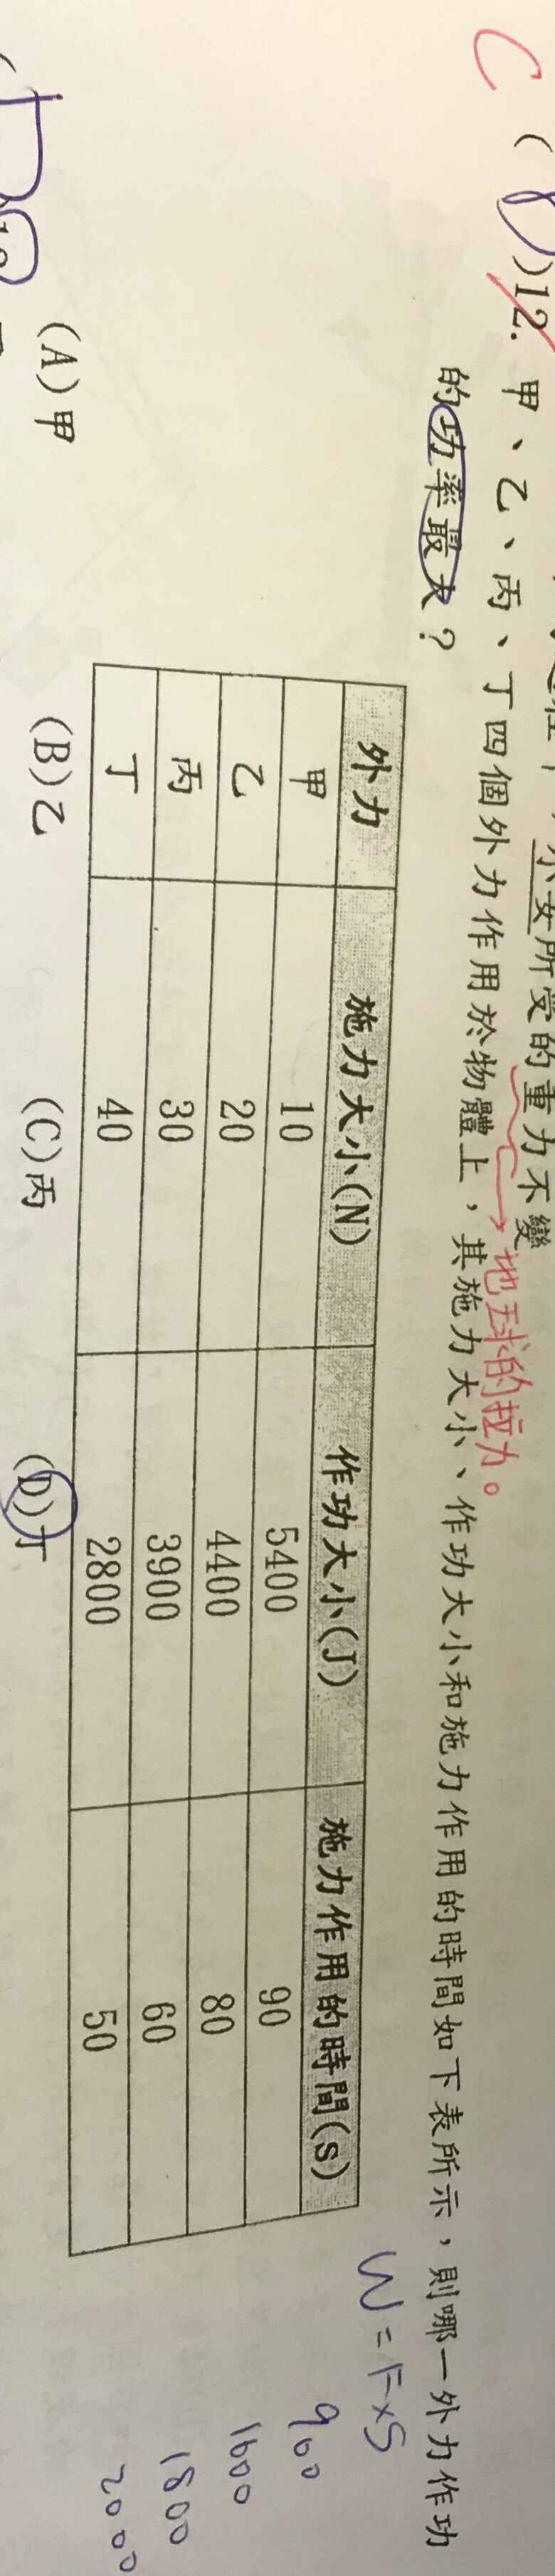 小女所受的重力不變
地球的拉力。
C ( D )12. 甲、乙、丙、丁四個外力作用於物體上，其施力大小、作功大小和施力作用的時間如下表所示，則哪一外力作功
的功率最大？
W = F×S
外力 施力大小(N) 作功大小(J) 施力作用的時間(s)
甲 10 5400 90 900
乙 20 4400 80 1600
丙 30 3900 60 1800
丁 40 2800 50 2000
(A)甲 (B)乙 (C)丙 (D)丁